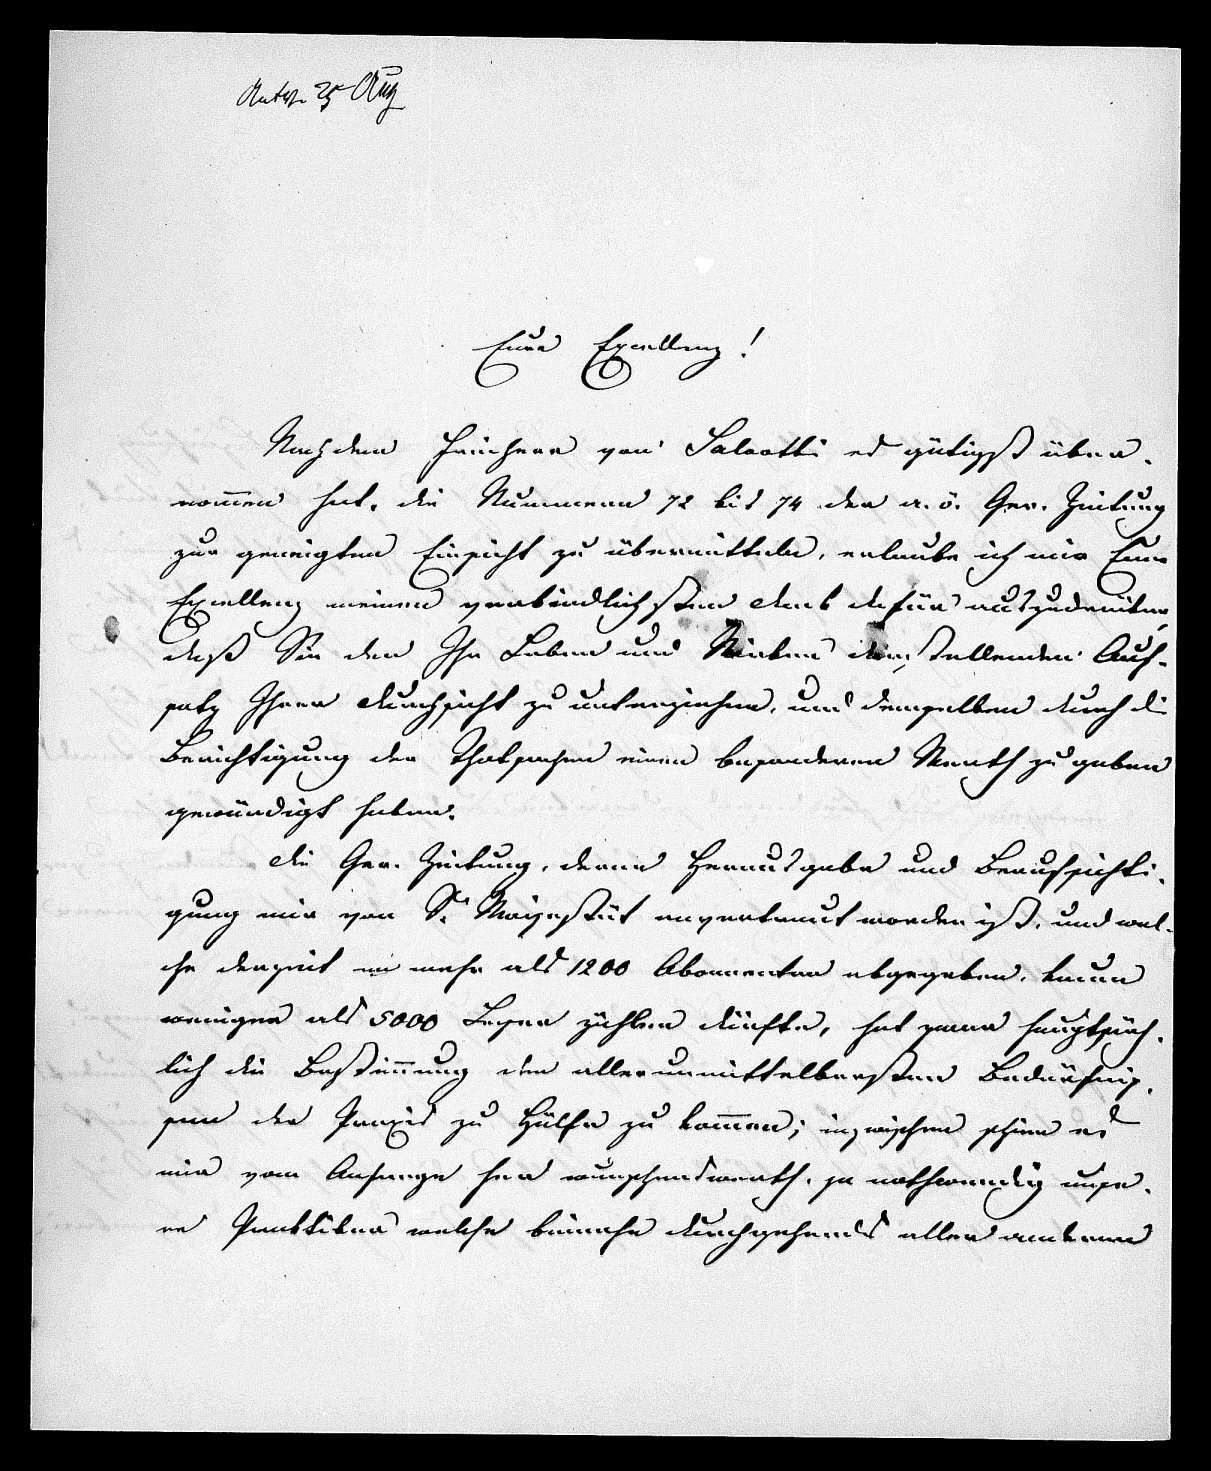 Antw. 25 Aug
Eure Excellenz!
Nachdem Freiherr von Salvotti es gütigst über-
nom̅en hat, die Nummern 72 bis 74 der a. ö. Ger. Zeitung
zur geneigten Einsicht zu übermitteln, erlaube ich mir Eure
Excellenz meinen verbindlichsten Dank dafür auszudrücken,
daß Sie den Ihr Leben und Wirken darstellenden Auf-
satz Ihrer Durchsicht zu unterziehen, und demselben durch die
Berichtigung der Thatsachen einen besonderen Werth zu geben
gewürdigt haben.
Die Ger. Zeitung, deren Herausgabe und Beaufsichti-
gung mir von Sr Majestät anvertraut worden ist, und wel-
che derzeit in mehr als 1200 Abonenten abgegeben, kaum
weniger als 5000 Leser zählen dürfte, hat zwar hauptsäch-
lich die Bestim̅ung den allerunmittelbarsten Bedürfnis-
sen der Praxis zu Hülfe zu kom̅en; inzwischen schien es
mir vom Anfange her wunschenswerth, ja nothwendig unse-
re Praktiker welche beinahe durchgehends aller anderen